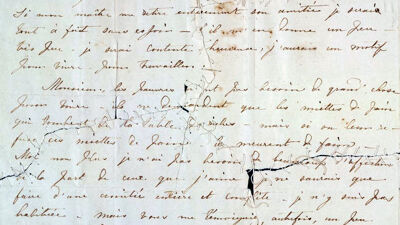 Si mon maître me retire entièrement son amitié je serai
tout à fait sans espoir - s'il m'en donne un peu
très peu - je serai contente - heureuse, j'aurais un motif
pour vivre - pour travailler.
Monsieur, les pauvres n'ont pas besoin de grand'chose
pour vivre - ils ne demandent que les miettes de pain
qui tombent de la table des riches - mais si on leur re-
fuse ces miettes de pain - ils meurent de faim -
Moi non plus je n'ai pas besoin de beaucoup d'affection
de la part de ceux que j'aime je ne saurais que
faire d'une amitié entière et complète - je n'y suis pas
habituée - mais vous me témoigniez, autrefois, un peu